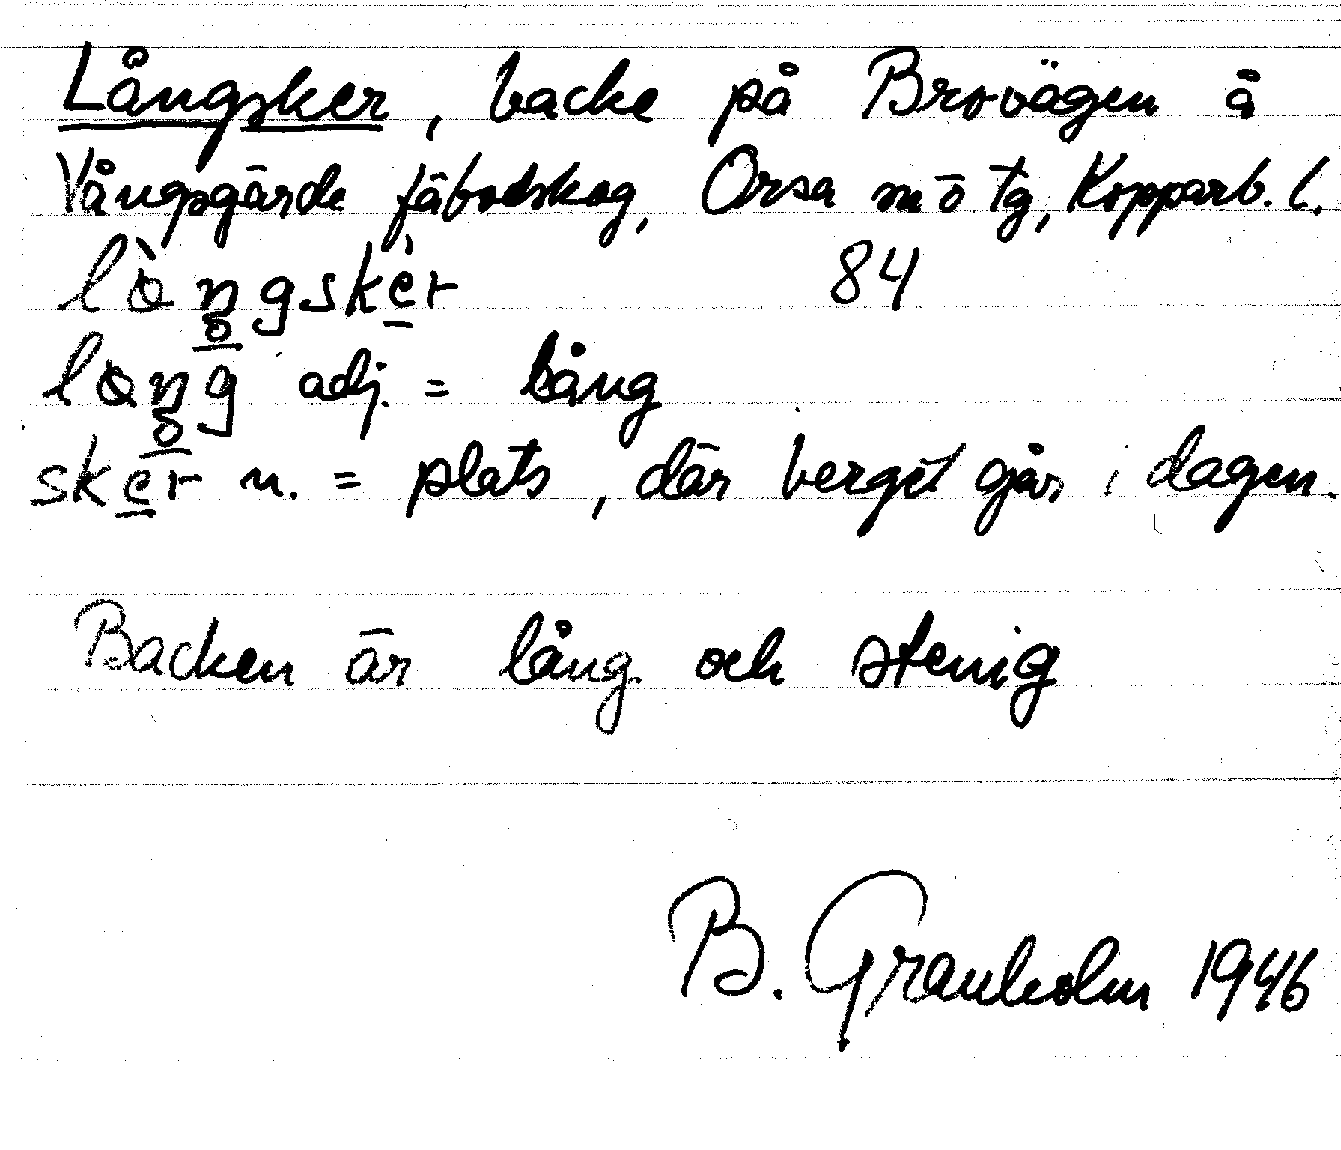 Långsker, backe på Brovägen å
Vångsgärde fäbodskog, Orsa sn o tg, Kopparb. l.
lòngskèr 84
long adj. = lång
sker n. = plats, där berget går i dagen.
Backen är lång och stenig
B. Granholm 1946